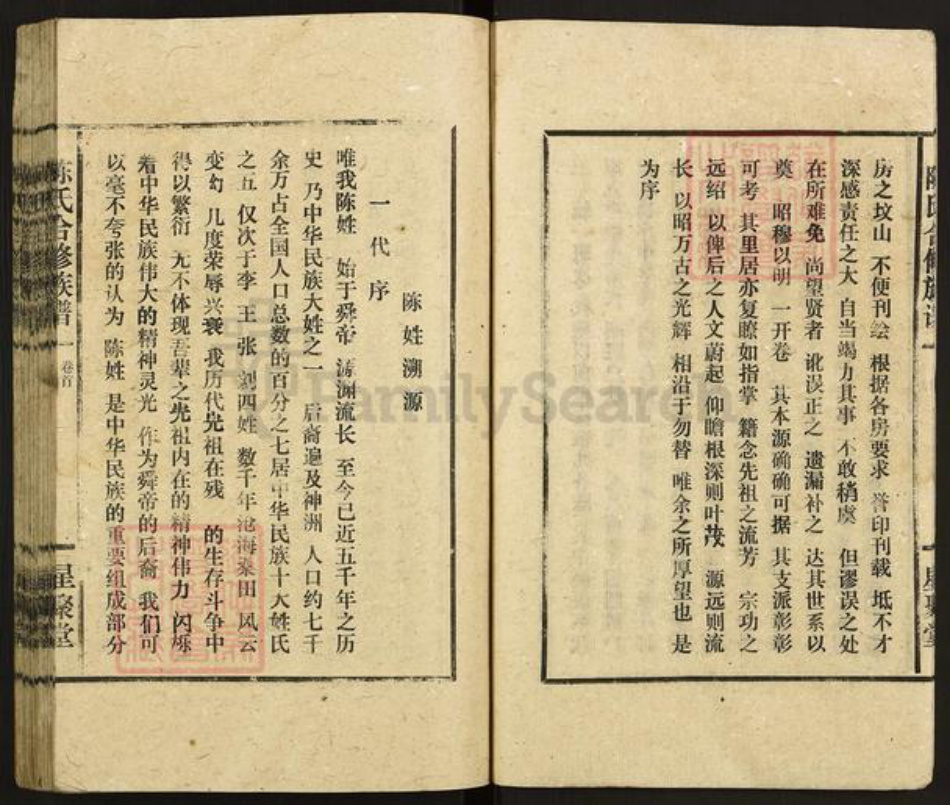 房之坟山 不便刊绘 根据各房要求 誊印刊载 坻不才
深感责任之大 自当竭力其事 不敢稍虞 但谬误之处
在所难免 尚望贤者 讹误正之 遗漏补之 达其世系以
奠 昭穆以明 一开卷 其本源确确可据 其支派彰彰
可考 其里居亦复瞭如指掌 籍念先祖之流芳 宗功之
远绍 以俾后之人文蔚起 仰瞻根深则叶茂 源远则流
长 以昭万古之光辉 相沿于勿替 唯余之所厚望也 是
为序
陈姓溯源
一代序
唯我陈姓 始于舜帝 源渊流长 至今已近五千年之历
史 乃中华民族大姓之一 后裔遍及神洲 人口约七千
余万占全国人口总数的百分之七居中华民族十大姓氏
之五 仅次于李 王 张 刘四姓 数千年沧海桑田 风云
变幻 几度荣辱兴衰 我历代先祖在残 的生存斗争中
得以繁衍 无不体现吾辈之先祖内在的精神伟力 闪烁
着中华民族伟大的精神灵光 作为舜帝的后裔 我们可
以毫不夸张的认为 陈姓 是中华民族的重要组成部分
陈氏合修族谱 一 卷首
星聚堂
FamilySearch